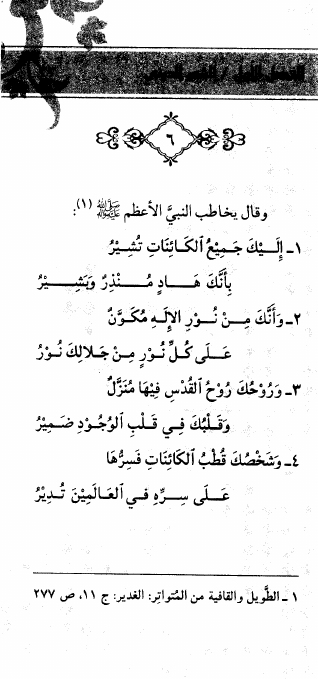 ٦
وقال يخاطب النبيَّ الأعظم ﷺ (١):
١ـ إِلَيْكَ جَمِيْعُ الكَائِنَاتِ تُشِيْرُ
بِأَنَّكَ هَادٍ مُنْذِرٌ وَبَشِيْرُ
٢ـ وَأَنَّكَ مِنْ نُوْرِ الإِلَهِ مُكَوَّنٌ
عَلَى كُلِّ نُوْرٍ مِنْ جَلَالِكَ نُوْرُ
٣ـ وَرُوْحُكَ رُوْحُ القُدْسِ فِيْهَا مُنَزَّلٌ
وَقَلْبُكَ فِي قَلْبِ الوُجُوْدِ ضَمِيْرُ
٤ـ وَشَخْصُكَ قُطْبُ الكَائِنَاتِ فَسِرُّهَا
عَلَى سِرِّهِ في العَالَمِيْنَ تُدِيْرُ
١ ـ الطَّويل والقافية من المُتواتِر: الغدير: ج ١١، ص ٢٧٧